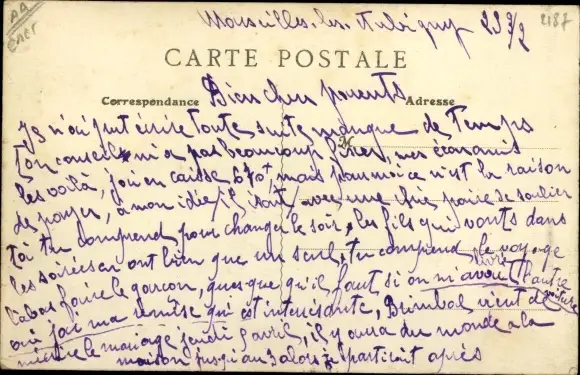 Marseilles-les-Aubigny 23 3/2
2187
CARTE POSTALE
Correspondance
Bien cher parents
Adresse
Je n'ai put écrire toute suite manque de Temps
ton conseil m'a pas beaucoup , mes économis
les voila, j'ai en caisse 670f, mais pour moi ce n'est la raison
de payer, a mon idée, il faut avec une paire de soulier
toi tu comprend pour changer le soir, les fils qui vonts dans
les soirées en ont bien que un seul, tu comprend le voyage
la bas faire le garçon, que que qu'il faut si on m'avait l'autre
oui j'ai ma remise qui est interissante, vient de
le mariage jeudi 5 avril, il y aura du monde a la
maison jusqu'au 3 alors je partirait après